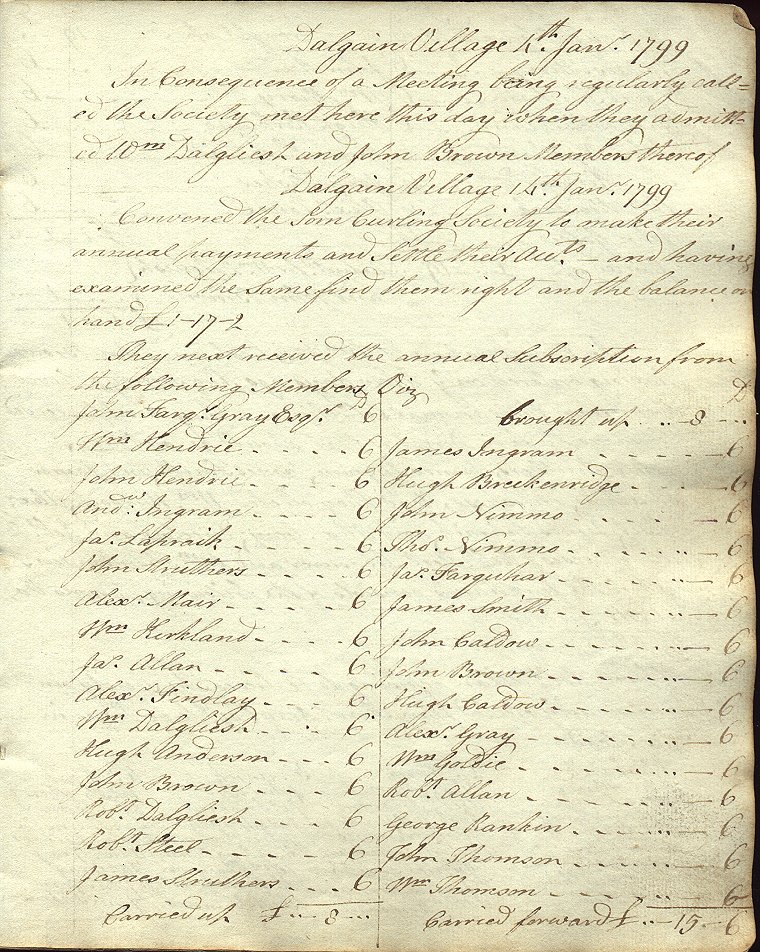 Dalgain Village 4th Janr. 1799
In Consequence of a Meeting being regularly call=
ed the Society met here this day when they admitt=
ed Wm Dalgliesh and John Brown Members thereof
Dalgain Village 14th Janr. 1799
Convened the Sorn Curling Society to make their
annual payments and Settle their Accts - and having
examined the Same find them right and the balance on
hand £1-17-2
They next received the annual Subscription from
the following Members Viz
D
John Farqr. Gray Esqr. 6
Wm Hendrie - - - - 6
John Hendrie - - - 6
Andw. Ingram - - - - 6
Jas. Lapraik - - - - 6
John Struthers - - - 6
Alexr. Mair - - - - - 6
Wm Kirkland - - - - 6
Jas. Allan - - - - - 6
Alexr. Findlay - - - - 6
Wm Dalgliesh - - - 6
Hugh Anderson - - - 6
John Brown - - - - 6
Robt. Dalgliesh - - - 6
Robt. Steel - - - - - 6
James Struthers - - - 6
Carried up £ " - 8 - "
D
brought up " - 8 - "
James Ingram - - - - - 6
Hugh Breckenridge - - - - 6
John Nimmo - - - - - 6
Thos. Nimmo - - - - - " - 6
Jas. Farquhar - - - - - " - 6
James Smith - - - - - " - 6
John Caldow - - - - - " - 6
John Brown - - - - - " - 6
Hugh Caldow - - - - - " - 6
Alexr. Gray - - - - - " - 6
Wm Goldie - - - - - " - 6
Robt. Allan - - - - - " - 6
George Rankin - - - - " - 6
John Thomson - - - - " - 6
Wm Thomson - - - - - " - 6
Carried forward £ " - 15 - 6